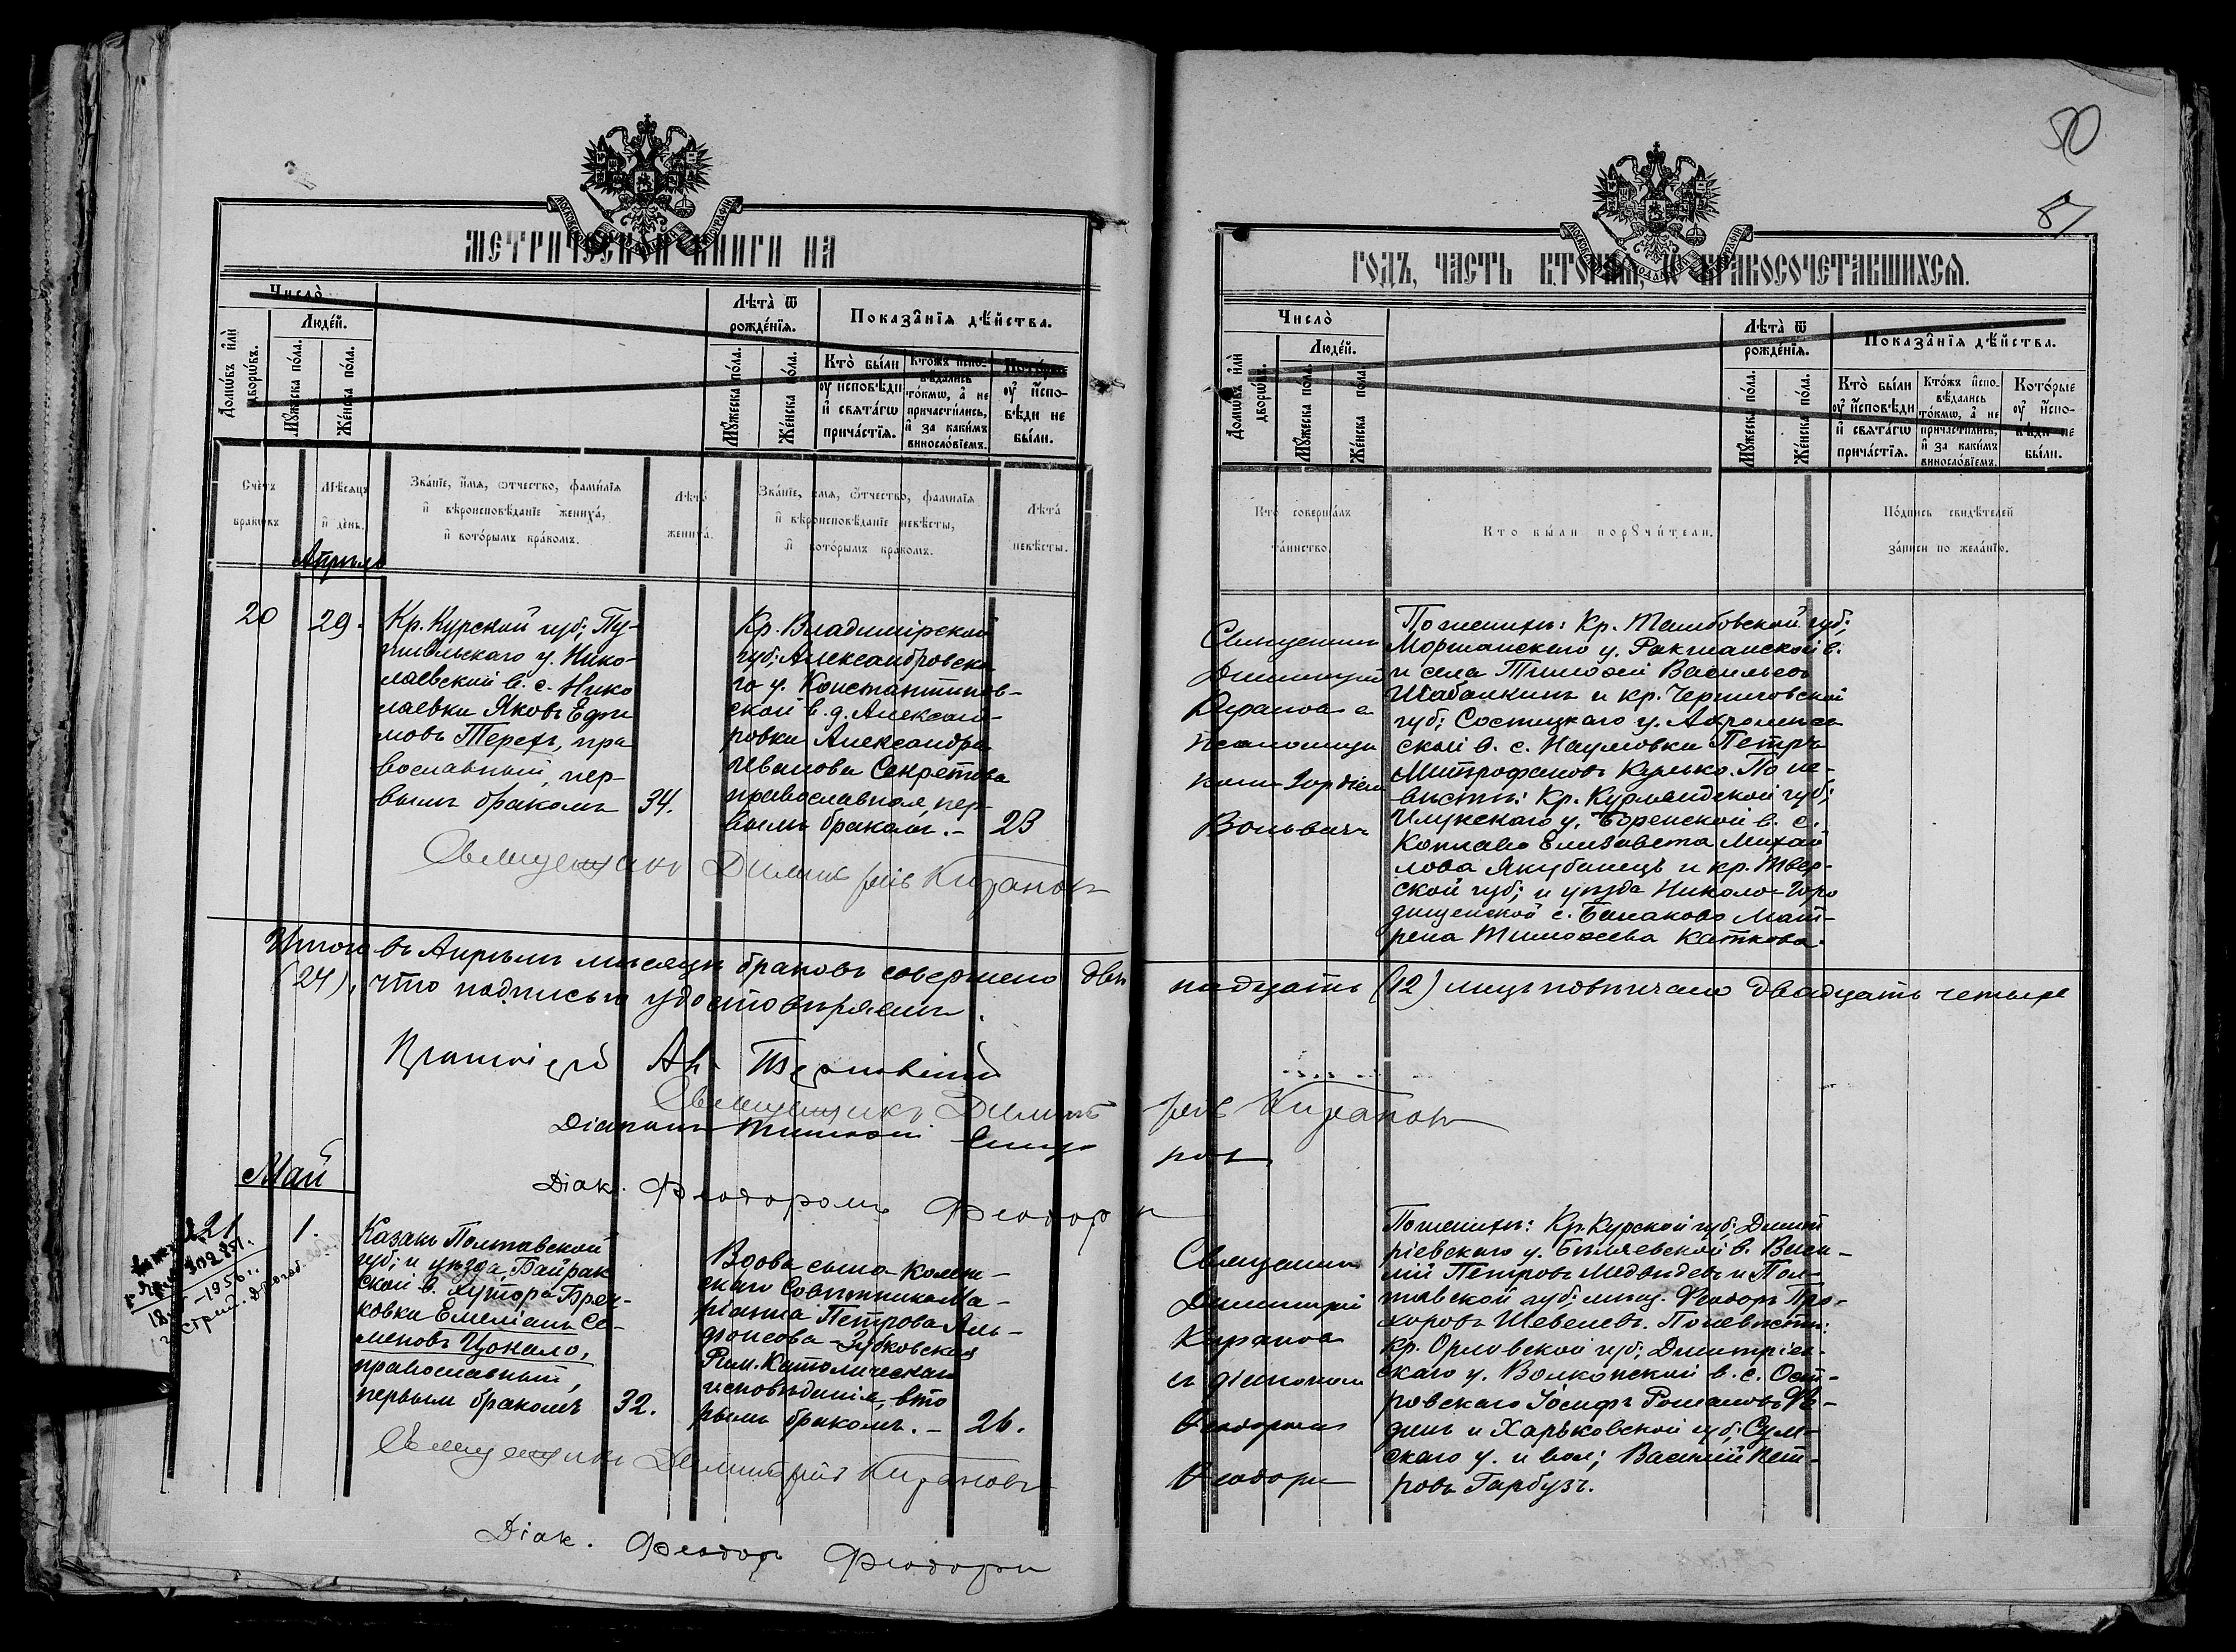 50
87
МЕТРИЧЕСКОЙ КНИГИ НА
ГОДЪ, ЧАСТЬ ВТОРАЯ, О БРАКОСОЧЕТАВШИХСЯ.
Число̀
Людéй.
Домѡ́въ и҆лѝ дворѡ́въ.
Мꙋ́жеска по́ла.
Же́нска по́ла.
Лѣта̀ ѿ рожде́нїѧ.
Мꙋ́жеска по́ла.
Же́нска по́ла.
Показа̑нїѧ дѣ́йства.
Кто̀ бы́ли оу҆ и҆сповѣди и҆ свѧта́гѡ прича́стїѧ.
Кто́жъ и҆спо-
вѣдались то́кмѡ, а҆ не причасти́лись, и҆ за каки́мъ винослов́їемъ.
Кото́рые оу҆ и҆спо-
вѣди не бы́ли.
Счетъ браковъ
Мѣсяцъ и день.
Зва́нїе, и҆́мѧ, ѻ҆́тчество, фами́лїѧ
и҆ вѣроисповѣ́данїе жениха̀,
и҆ кото́рымъ бра́комъ.
Лѣта̀ жениха̀.
Зва́нїе, и҆́мѧ, ѻ҆́тчество, фами́лїѧ
и҆ вѣроисповѣ́данїе невѣ́сты,
и҆ кото́рымъ бра́комъ.
Лѣта̀ невѣ́сты.
Кто̀ соверша́лъ
та́инство.
Кто бы́ли порꙋчи́тели.
По́дпись свидѣ́телей
за́писи по жела́нїю.
Апрѣль
20
29.
Кр. Курской губ; Пу-
тивльскаго у. Нико-
лаевской в. с. Нико
лаевки Яковъ Ефи
мовъ Терехъ, пра
вославный, пер-
вымъ бракомъ
34.
Кр. Владимірской
губ; Александровска-
го у. Константинов-
ской в. д. Александ-
ровки Александра
Иванова Секретова
православная, пер-
вымъ бракомъ. –
23
Священникъ
Димитрій
Киранов с
псаломщи
комъ Гордіем
Воповичъ
По женихѣ: Кр. Тамбовской губ;
Моршанскаго у. Ракшанской в.
и села Тимоѳей Васильевъ
Шабалкинъ и кр. Черниговской
губ; Состицкаго у.
ской в. с. Наумовки Петръ
Митрофановъ Кулько. По не-
вѣстѣ: Кр. Курляндской губ;
Илукскаго у. в. с.
Елизавета Михай
лова Якубинецъ и кр. Твер-
ской губ; и уѣзда Николо-Горо
дищенской с. Балаково Мат-
рена Тимоѳеева Каткова.
Священникъ Димитрій Кирановъ
Итого въ Апрѣлѣ мѣсяцѣ браковъ совершено двѣ
надцать (12) лицъ повѣнчано двадцать четыре
(24), что подписью удостовѣряемъ.
Протоіерей Ал. Терновскій
Священникъ Димитрій Кирановъ
Діаконъ Тимоѳей
Діак. Ѳеодоръ Ѳеодори
Май
21
1.
Казакъ Полтавской
губ; и уѣзда, Байрак
ской в. хутора Брич-
ковки Емеліанъ Се-
меновъ Цокало,
православный,
первымъ бракомъ
32.
Вдова сына Коллеж-
скаго Совѣтника Ма-
ріанна Петрова Аль-
фонсова-Зубковская
Рим. Католическаго
исповѣданія, вто
рымъ бракомъ. –
26.
Священникъ
Димитрій
Киранов
съ діакономъ
Ѳеодоромъ
Ѳеодори
По женихѣ: Кр. Курской губ; Дмит
ріевскаго у. Бѣляевской в. Васи-
лій Петровъ Медвѣдевъ и Пол-
тавской губ; мѣщ. Ѳеодоръ Про-
хоровъ Шевелевъ. По невѣстѣ:
Кр. Орловской губ; Дмитріев-
скаго у. Волконской в. с. Ост-
ровскаго Іосифъ Романовъ Фе-
динъ и Харьковской губ; Сум-
скаго у. и вол; Василій Пет-
ровъ Гарбузъ.
Священникъ Димитрій Кирановъ
Діак. Ѳеодоръ Ѳеодори